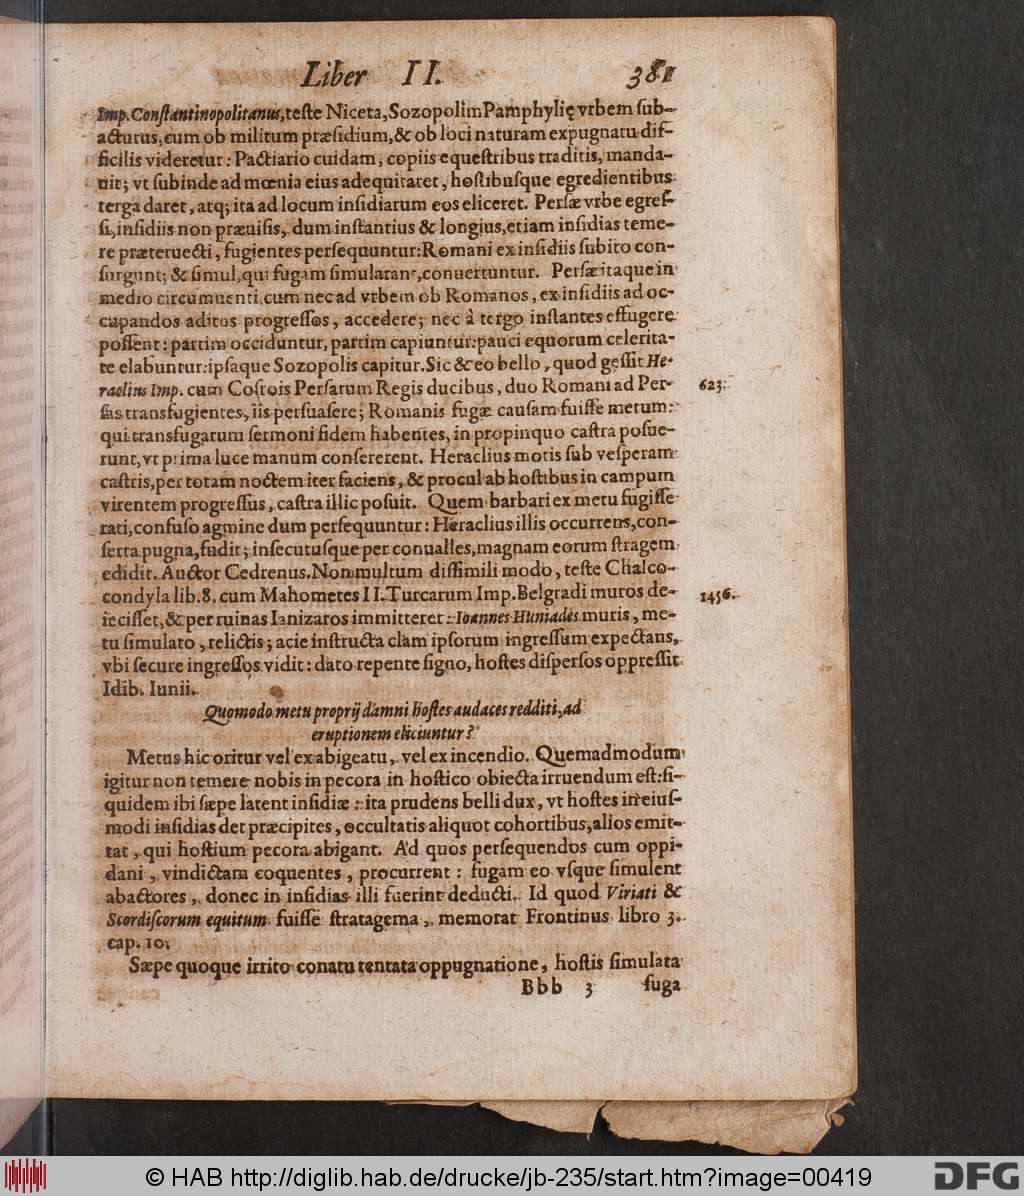 Liber II. 381
Imp. Constantinopolitanus, teste Niceta, Sozopolim Pamphylię vrbem sub-
acturus, cum ob militum præsidium, & ob loci naturam expugnatu dif-
ficilis videretur: Pactiario cuidam, copiis equestribus traditis, manda-
uit; vt subinde ad mœnia eius adequitaret, hostibusque egredientibus
terga daret, atq; ita ad locum insidiarum eos eliceret. Persæ vrbe egres-
si, insidiis non præuisis, dum instantius & longius, etiam insidias teme-
re præteruecti, fugientes persequuntur: Romani ex insidiis subito con-
surgunt; & simul, qui fugam simularant, conuertuntur. Persæ itaque in
medio circumuenti, cum nec ad vrbem ob Romanos, ex insidiis ad oc-
cupandos aditus progressos, accedere; nec à tergo instantes effugere
possent: partim occiduntur, partim capiuntur: pauci equorum celerita-
te elabuntur: ipsaque Sozopolis capitur. Sic & eo bello, quod gessit He-
raclius Imp. cum Cosrois Persarum Regis ducibus, duo Romani ad Per-
sas transfugientes, iis persuasere; Romanis fugæ causam fuisse metum:
qui transfugarum sermoni fidem habentes, in propinquo castra posue-
runt, vt prima luce manum consererent. Heraclius motis sub vesperam
castris, per totam noctem iter faciens, & procul ab hostibus in campum
virentem progressus, castra illic posuit. Quem barbari ex metu fugisse
rati, confuso agmine dum persequuntur: Heraclius illis occurrens, con-
serta pugna, fudit; insecutusque per conualles, magnam eorum stragem
edidit. Auctor Cedrenus. Non multum dissimili modo, teste Chalco-
condyla lib. 8. cum Mahometes II. Turcarum Imp. Belgradi muros de-
iecisset, & per ruinas Ianizaros immitteret: Ioannes Huniades muris, me-
tu simulato, relictis; acie instructa clam ipsorum ingressum expectans,
vbi secure ingressos vidit: dato repente signo, hostes dispersos oppressit
Idib. Iunii.
623.
1456.
Quomodo metu proprij damni hostes audaces redditi, ad
eruptionem eliciuntur?
Metus hic oritur vel ex abigeatu, vel ex incendio. Quemadmodum
igitur non temere nobis in pecora in hostico obiecta irruendum est: si-
quidem ibi sæpe latent insidiæ: ita prudens belli dux, vt hostes in eius-
modi insidias det præcipites, occultatis aliquot cohortibus, alios emit-
tat, qui hostium pecora abigant. Ad quos persequendos cum oppi-
dani, vindictam coquentes, procurrent: fugam eo vsque simulent
abactores, donec in insidias illi fuerint deducti. Id quod Viriati &
Scordiscorum equitum fuisse stratagema, memorat Frontinus libro 3.
cap. 10.
Sæpe quoque irrito conatu tentata oppugnatione, hostis simulata
Bbb 3 suga
© HAB http://diglib.hab.de/drucke/jb-235/start.htm?image=00419
DFG